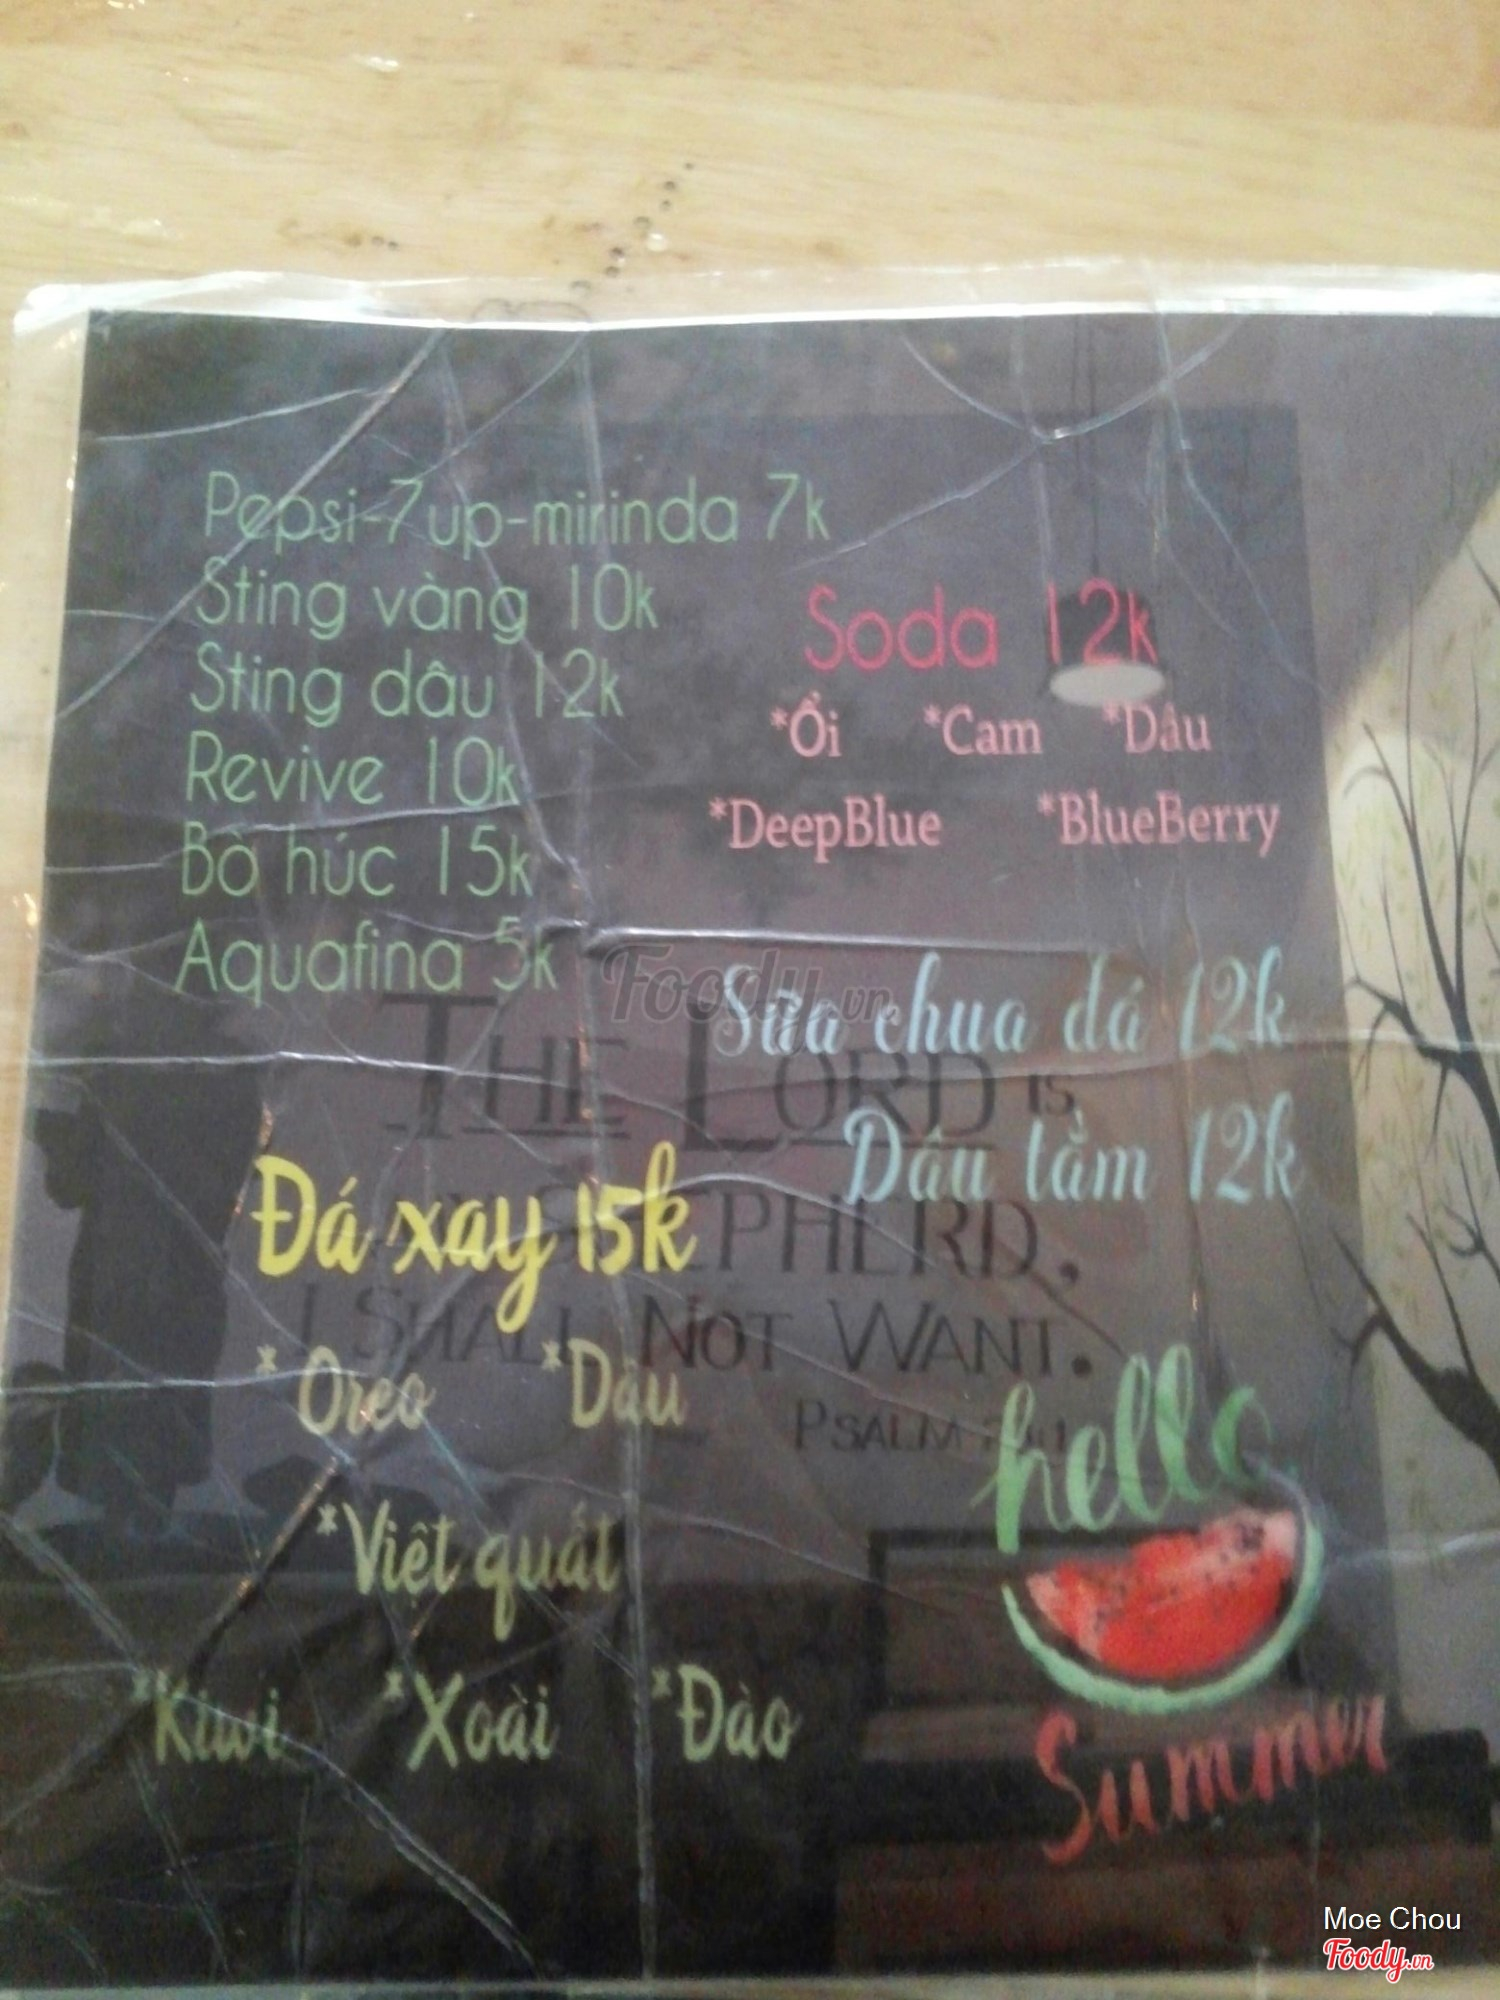 Pepsi-7up-mirinda 7k
Sting vàng 10k
Sting dâu 12k
Revive 10k
Bò húc 15k
Aquafina 5k
Soda 12k
*Ổi *Cam *Dâu
*DeepBlue *BlueBerry
Sữa chua đá 12k
Dâu tằm 12k
Đá xay 15k
*Oreo *Dâu
*Việt quất
*Kiwi *Xoài *Đào
THE LORD IS
SHEPHERD,
I SHALL NOT WANT.
PSALM
hello
Summer
Foody.vn
Moe Chou
Foody.vn